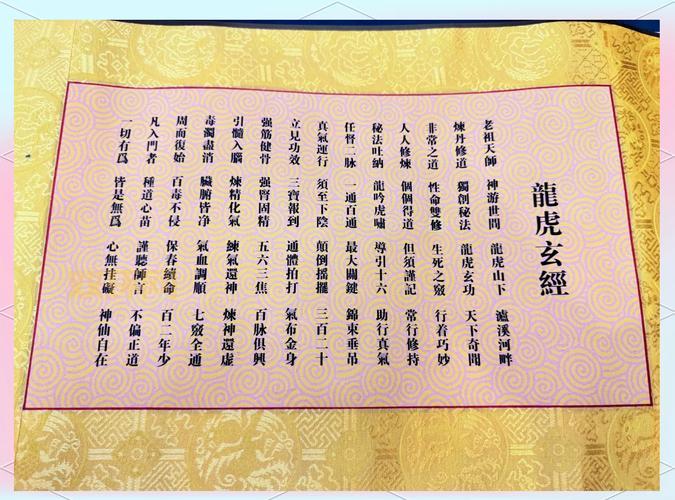 龍虎玄經
老祖天師 神游世間 龍虎山下 瀘溪河畔
煉丹修道 獨創秘法 龍虎玄功 天下奇聞
非常之道 性命雙修 生死之竅 行着巧妙
人人修煉 個個得道 但須謹記 常行修持
秘法吐納 龍吟虎嘯 導引十六 助行真氣
任督二脉 一通百通 最大關鍵 錦束垂吊
真氣運行 須至下陰 顛倒摇擺 三百二十
立見功效 三寶報到 通體拍打 氣布金身
强筋健骨 强腎固精 五六三焦 百脉俱興
引髓入腦 煉精化氣 練氣還神 煉神還虚
毒濁盡消 臟腑皆净 氣血調順 七竅全通
周而復始 百毒不侵 保春續命 百二年少
凡入門者 種道心苗 謹聽師言 不偏正道
一切有爲 皆是無爲 心無挂礙 神仙自在